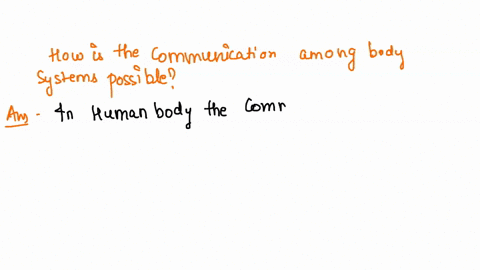 How is the Communication among body
Systems possible?
Ans - In Human body the Com